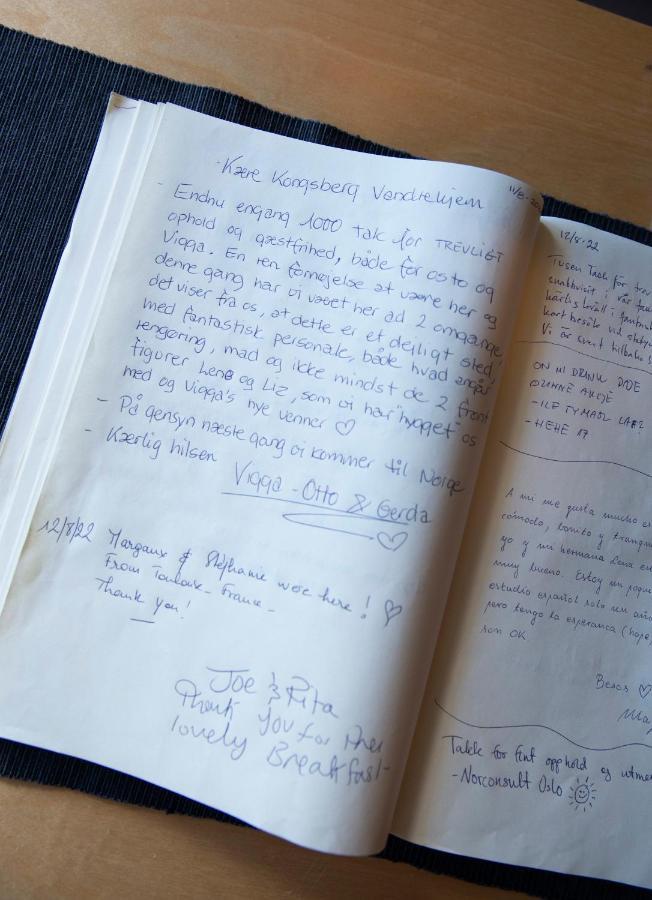 Kære Kongsberg Vandrehjem
11/8-
- Endnu engang 1000 tak for TREVLIGT
ophold og gæstfrihed, både for os to og
Vigga. En ren fornøjelse at være her og
denne gang har vi været her ad 2 omgange,
det viser fra os, at dette er et dejligt sted,
med fantastisk personale, både hvad angår
rengøring, mad og ikke mindst de 2 front
figurer Lene og Liz, som vi har "hygget" os
med og Vigga's nye venner ♡
- På gensyn næste gang vi kommer til Norge
- Kærlig hilsen
Vigga - Otto & Gerda
♡
12/8/22 Margaux & Stéphanie were here! ♡
From Toulouse - France -
Thank you!
Joe & Rita
Thank you for the
lovely Breakfast
12/8-22
Tusen tack för
snabbvisit i vår
härlig kväll i
kort besök vid
Vi är snart tilbaks
ON MI DRINK
-HEHE 17
A mi me gusta mucho
cómodo, bonito y tranqu
yo y mi hermana Lena
muy bueno. Estoy un poqu
estudio español solo un año
pero tengo la esperanca (hope)
son OK
Besos ♡
Takke for fint opphold og utme
- Norconsult Oslo